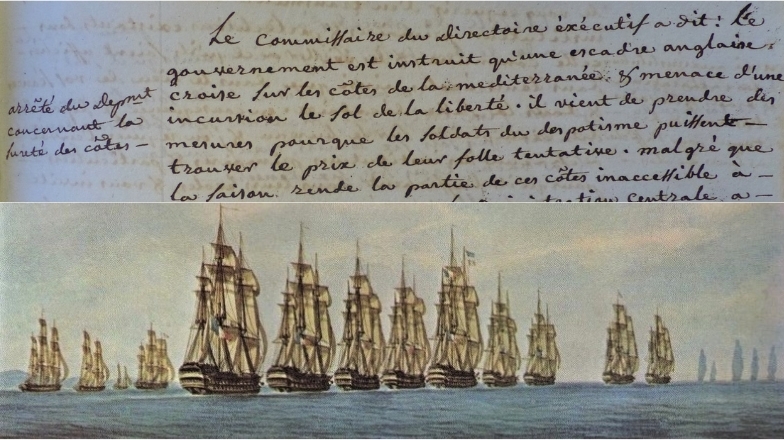 Le commissaire du Directoire éxécutif a dit : Le
gouvernement est instruit qu'une escadre anglaise
croise sur les côtes de la mediterranée, & menace d'une
incursion le sol de la liberté. il vient de prendre des
mesures pourque les soldats du despotisme puissent —
trouver le prix de leur folle tentative. malgré que
la saison rende la partie de ces côtes inaccessible à —
centrale a —
arrêté du Depmt
concernant la
sureté des côtes —